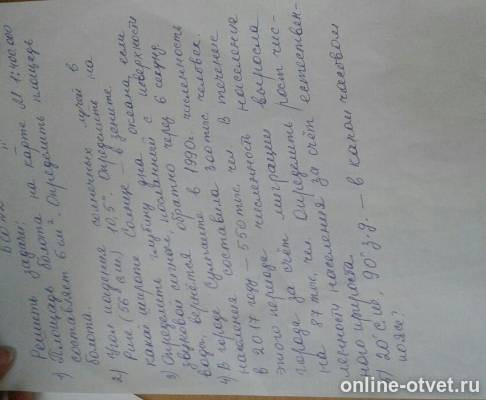 Решить задачи:
1) Площадь болота на карте М 1:400 000
составляет 6 см². Определить площадь
болота.
2) Угол падения солнечных лучей в
Риме 10,5°. Определите на
какой широте Солнце – в зените.
3) Определить глубину дна океана, если
звуковой сигнал, посланный с поверхности
воды, вернётся обратно через 6 секунд.
4) В городе Сургуте в 1990г. численность
населения составила 300 тыс. человек.
в 2017 году – 550 тыс. чел. В течение
этого периода численность населения
города за счёт миграции выросла
на 87 тыс. чел. Определить рост чис-
ленности населения за счёт естествен-
ного прироста.
5) 20° с.ш., 90° з.д. – в каком часовом
поясе?
online-otvet.ru